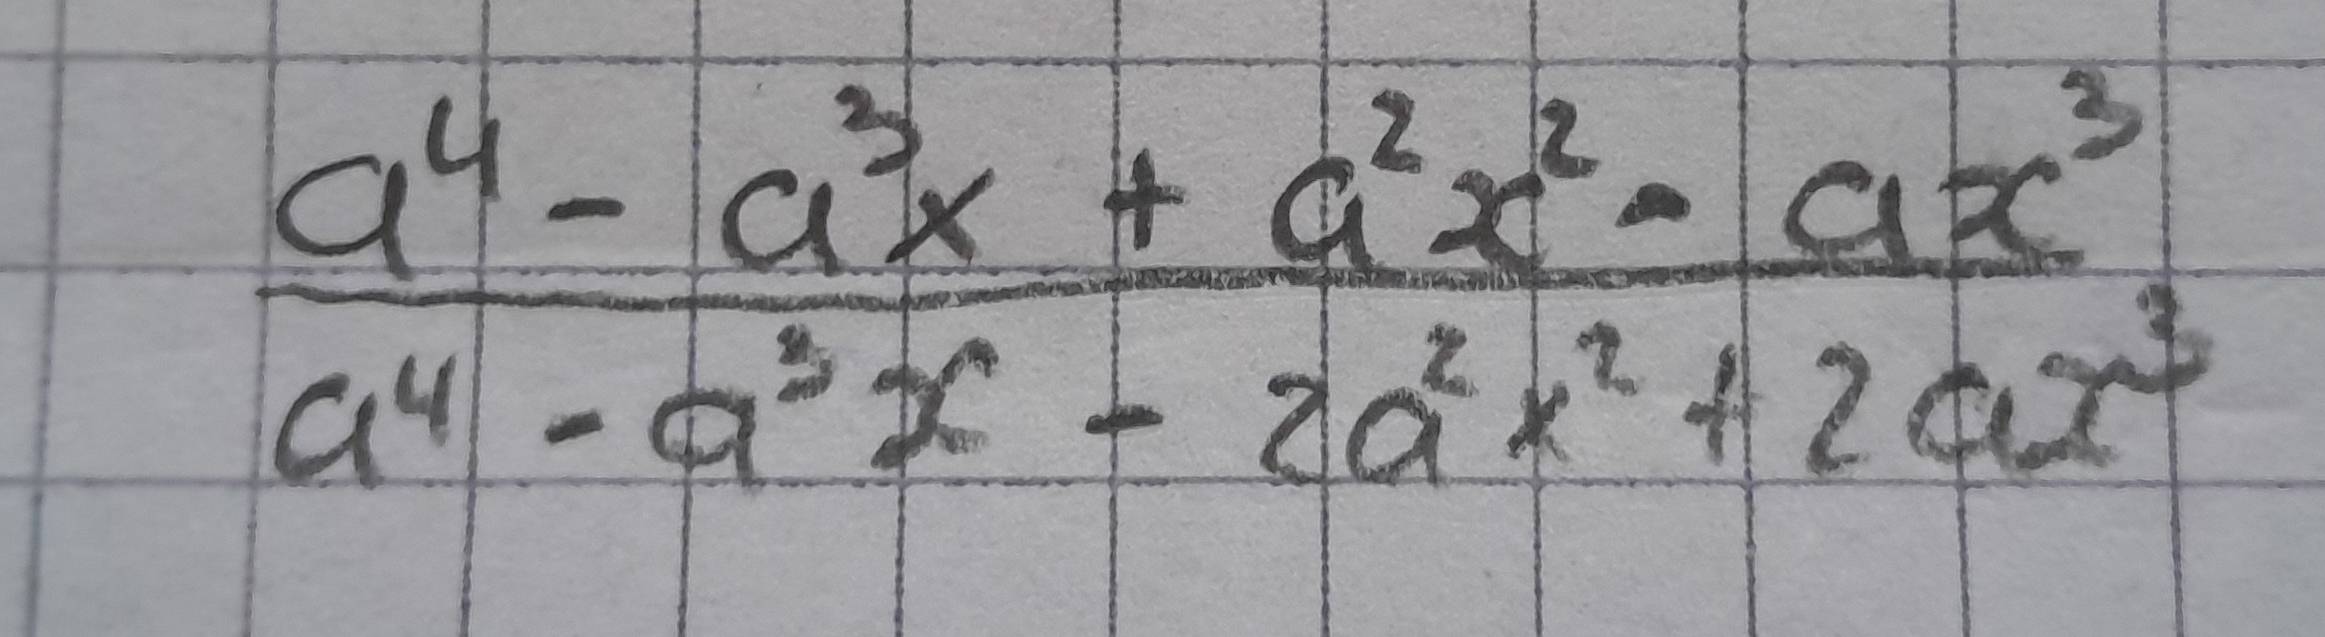 a⁴ - a³x + a²x² - ax³
a⁴ - a³x - 2a²x² + 2ax³